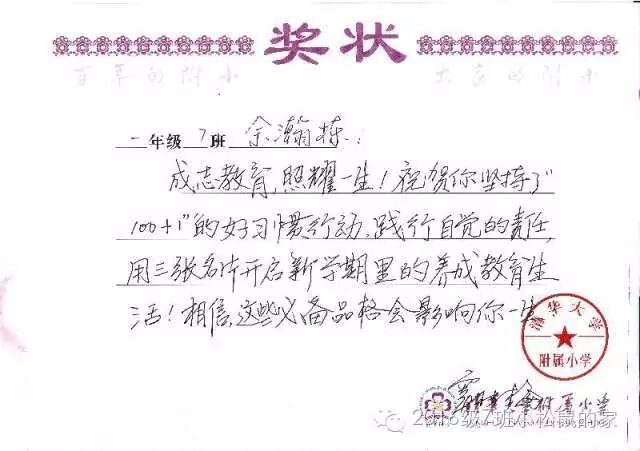 奖状
百年的附小 大家的附小
一年级 7班 余瀚栋：
成志教育，照耀一生！祝贺你坚持了"
100+1"的好习惯行动、践行自觉的责任，
用三张名片开启新学期里的养成教育生
活！相信这些必备品格会影响你一生
清华大学
附属小学
2016级7班小松鼠的家